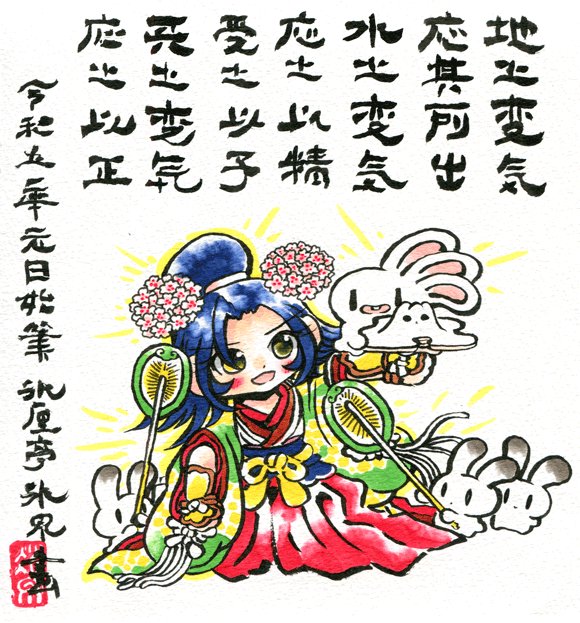 地之変気
応其所出
水之変気
応之以精
受之以子
天之変気
応之以正
令和五年元日始筆 氷厘亭氷泉画